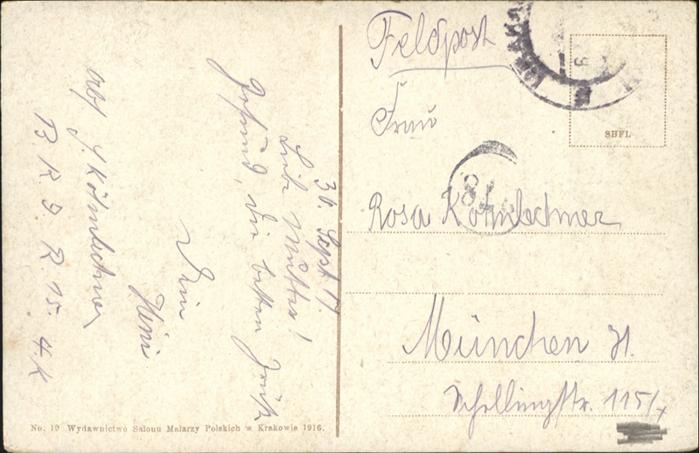 Feldpost
Frau
Rosa Kölnlechner
München 31.
Schellingstr. 115/
SBFL
84
30. Sept 17.
Liebe Mutter!
Gesund, die besten Grüße
Dein
Heini
Abs J. Kölnlechner
B. R. J. R. 15. 4. K
No. 19 Wydawnictwo Salonu Malarzy Polskich w Krakowie 1916.